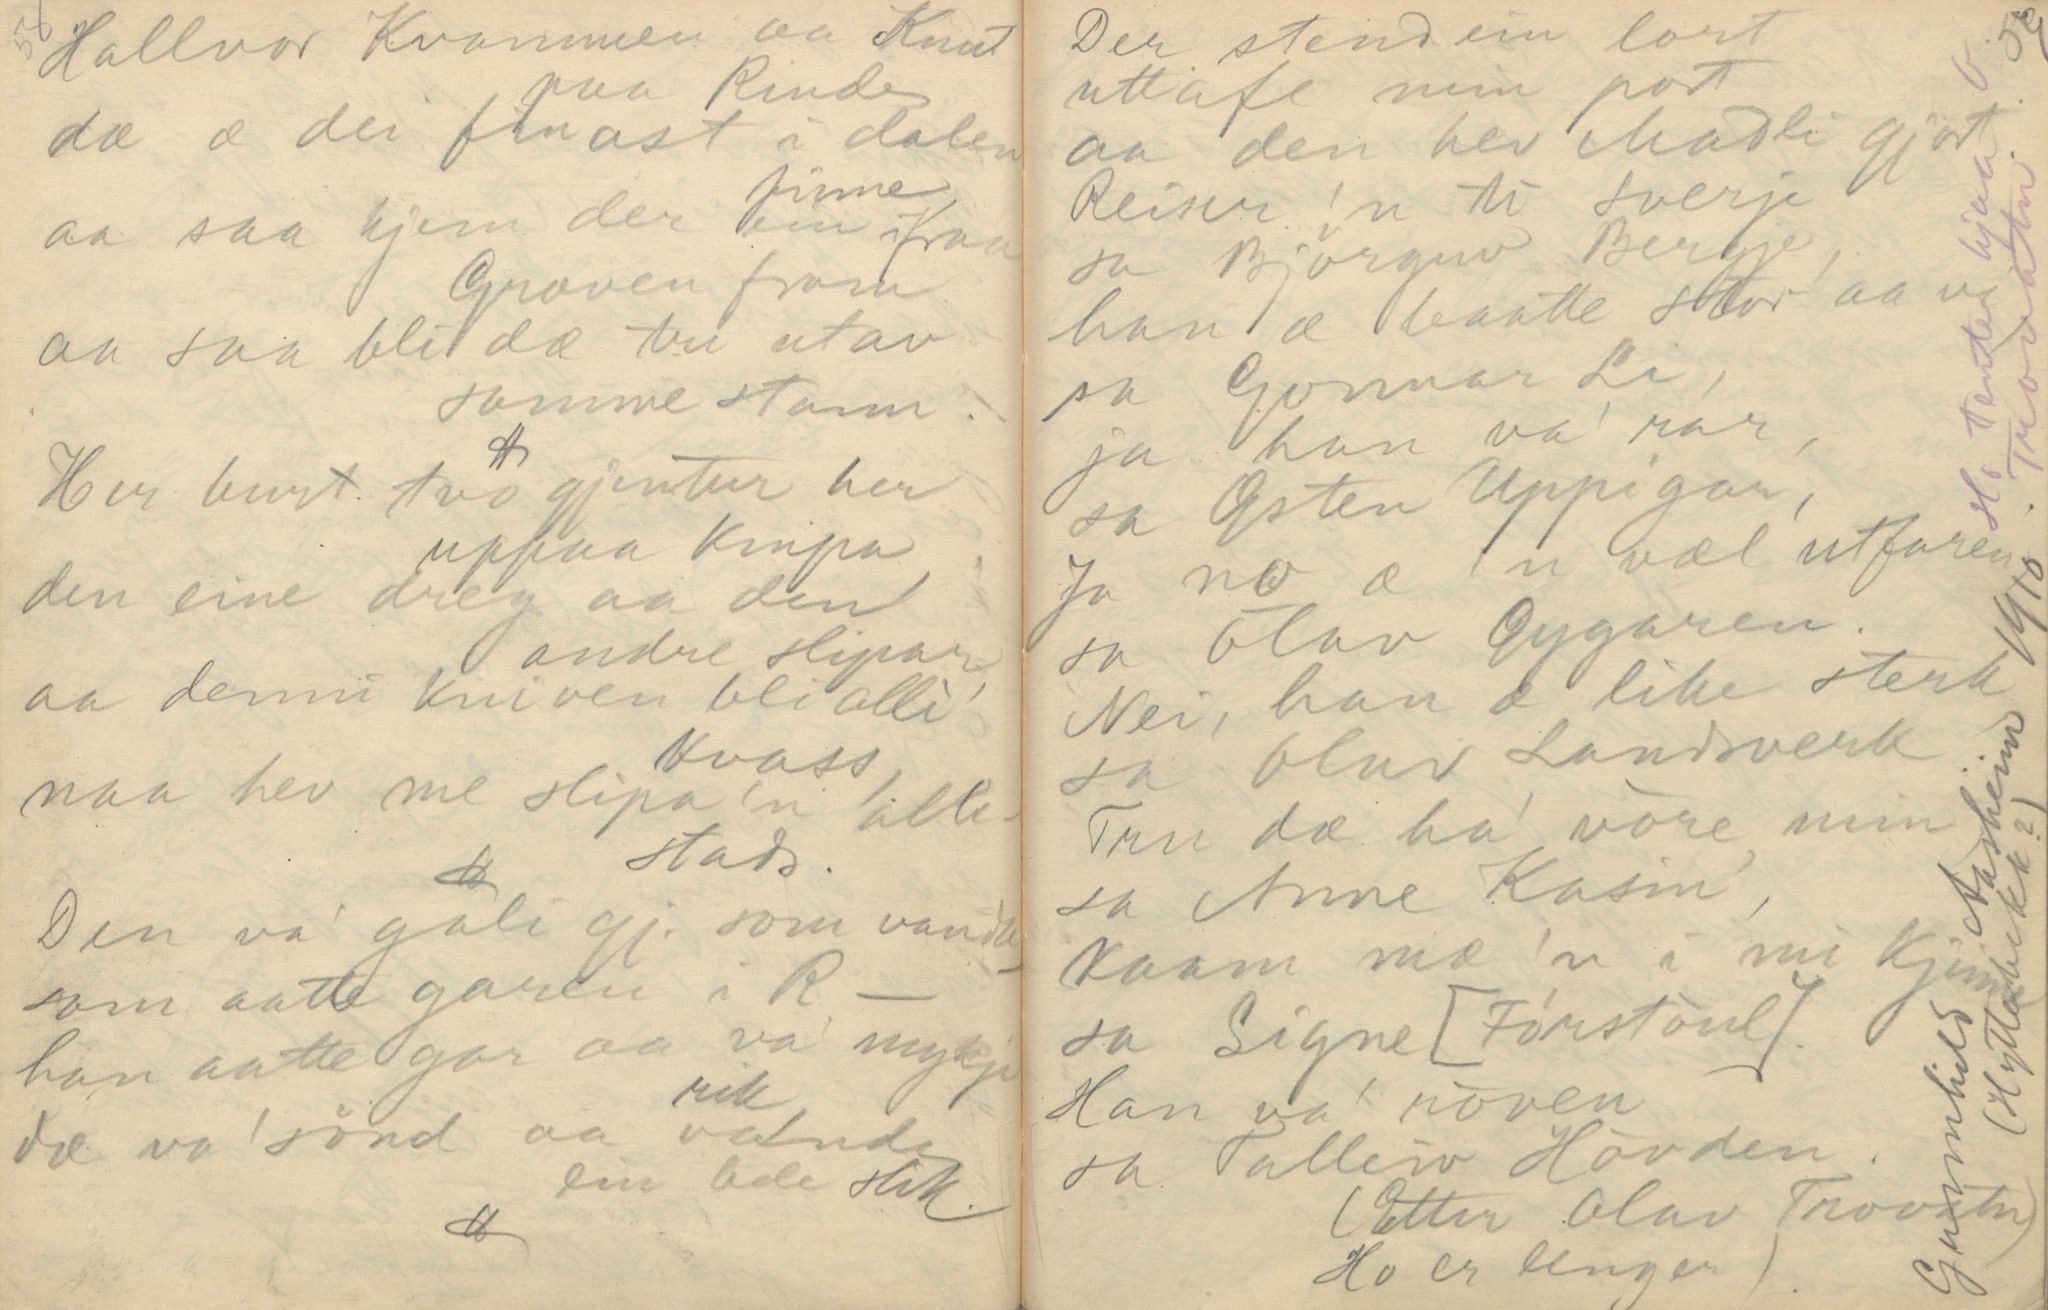 56
Hallvor Kvammen aa Knut
paa Rinde
dæ æ dei finast i dalen
aa saa kjem der ein finne ifraa
Groven fram
aa saa bli dæ tri utav
samme stam.
Her burt. tvo gjentur her
uppaa Knipa
den eine dreg aa den
andre slipar,
aa denni kniven bli alli
kvass,
naa hev me slipa 'n alle-
stads.
Den va' gali gj. som vanda
som aatte garen i R —
han aatte gar aa va' mykje
rik
dæ va' sönd aa vanda
ein bele slik.
Der stend ein lort
uttafe min port
aa den hev Madli gjort
Reiser 'n ti Sverje
sa Björguv Bergje,
han æ baatte stor aa
sa Gonnar Li,
ja han va' rar,
sa Östen Uppigar,
Ja no æ 'n væl utfaren
sa Olav Gygaren.
Nei, han æ like sterk
sa Olav Landsverk
Tru dæ ha' vöre min
sa Anne Kasin',
Kaam mæ 'n i mi kjinn
sa Signe [Förstöul].
Han va' röven
sa Talleiv Hövden.
(Etter Olav Trovatn)
Ho er lenger).
Gunnhild Aasheim 1910.
(Hyttebekk?)
Ho tender hjaa O.
Trovatn.